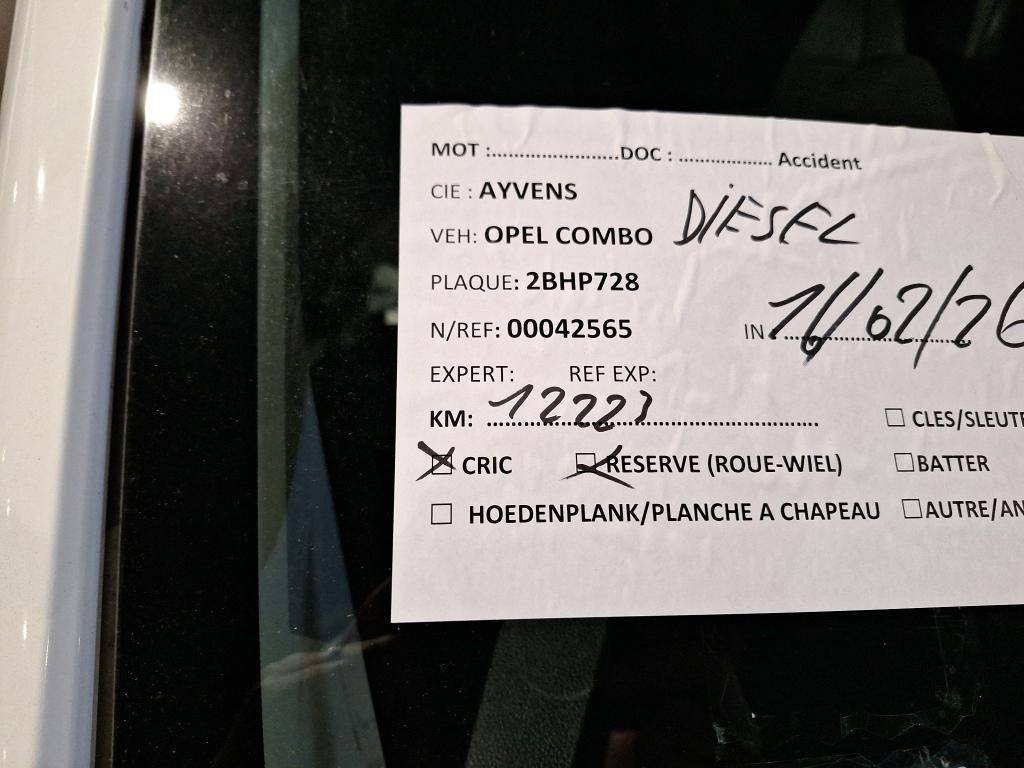 MOT :........................DOC : .................. Accident
CIE : AYVENS
VEH: OPEL COMBO DIESEL
PLAQUE: 2BHP728
N/REF: 00042565 IN 16/02/26
EXPERT: REF EXP:
KM: 12223 ☐ CLES/SLEUT
☒ CRIC ☒ RESERVE (ROUE-WIEL) ☐ BATTER
☐ HOEDENPLANK/PLANCHE A CHAPEAU ☐ AUTRE/AN